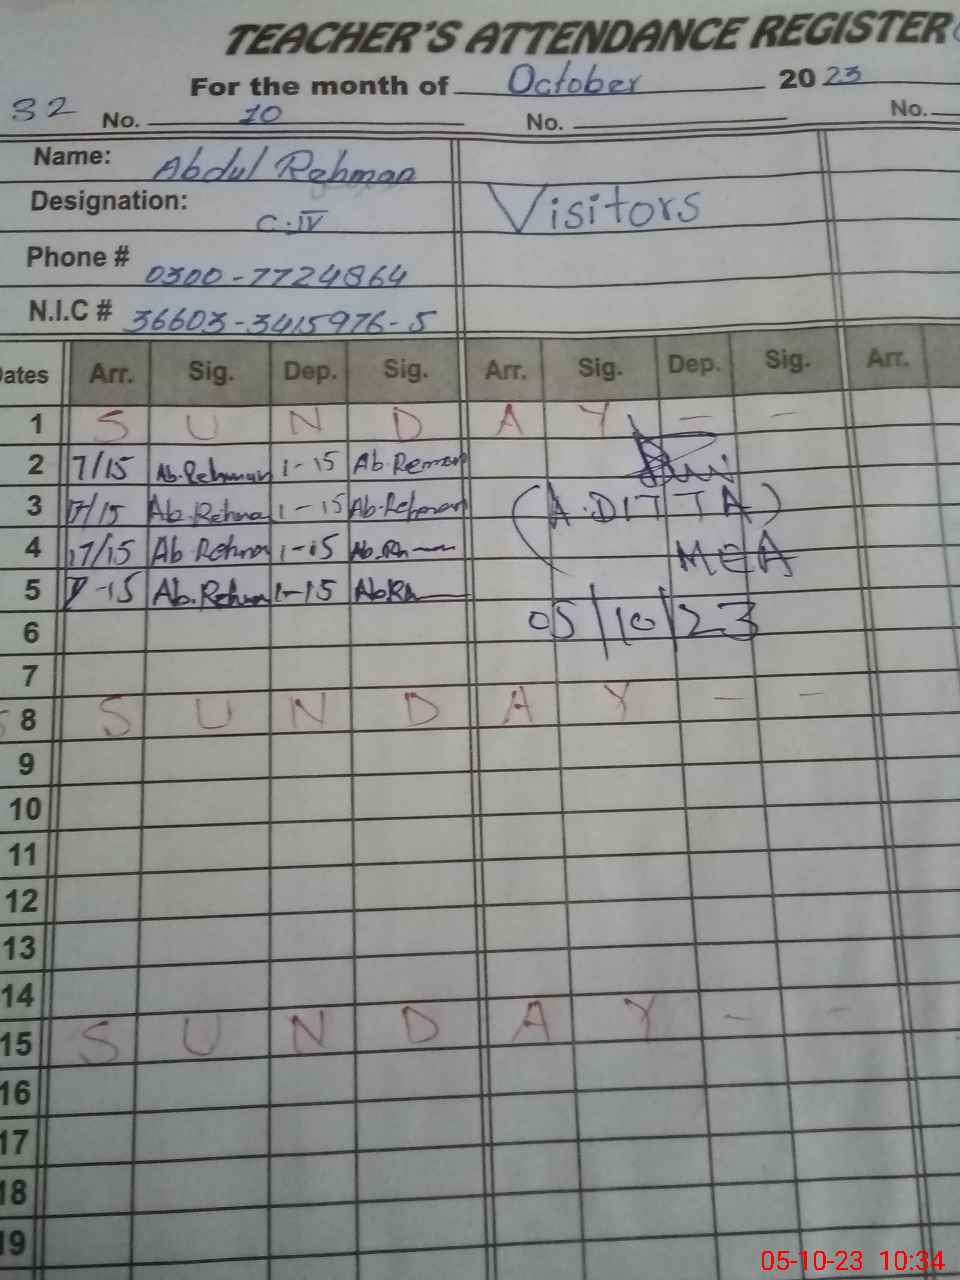 TEACHER'S ATTENDANCE REGISTER
For the month of October 2023
32 No. 10 No. No.
Name: Abdul Rehman
Designation: C.IV Visitors
Phone # 0300-7724864
N.I.C # 36603-3415976-5
Dates Arr. Sig. Dep. Sig. Arr. Sig. Dep. Sig. Arr.
1 S U N D A Y - -
2 7/15 Ab.Rehman 1-15 Ab.Reman
3 7/15 Ab.Rehma 1-15 Ab.Rehman (A.DITTA)
4 7/15 Ab Rehma 1-15 Ab.Rh MEA
5 7-15 Ab.Rehma 1-15 AbRh
6 05/10/23
7
8 S U N D A Y - -
9
10
11
12
13
14
15 S U N D A Y - -
16
17
18
19
05-10-23 10:34